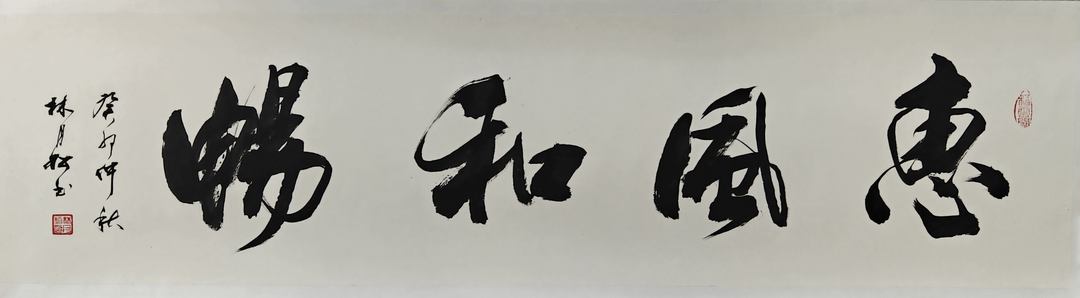 惠風和暢
癸卯仲秋
林月松书